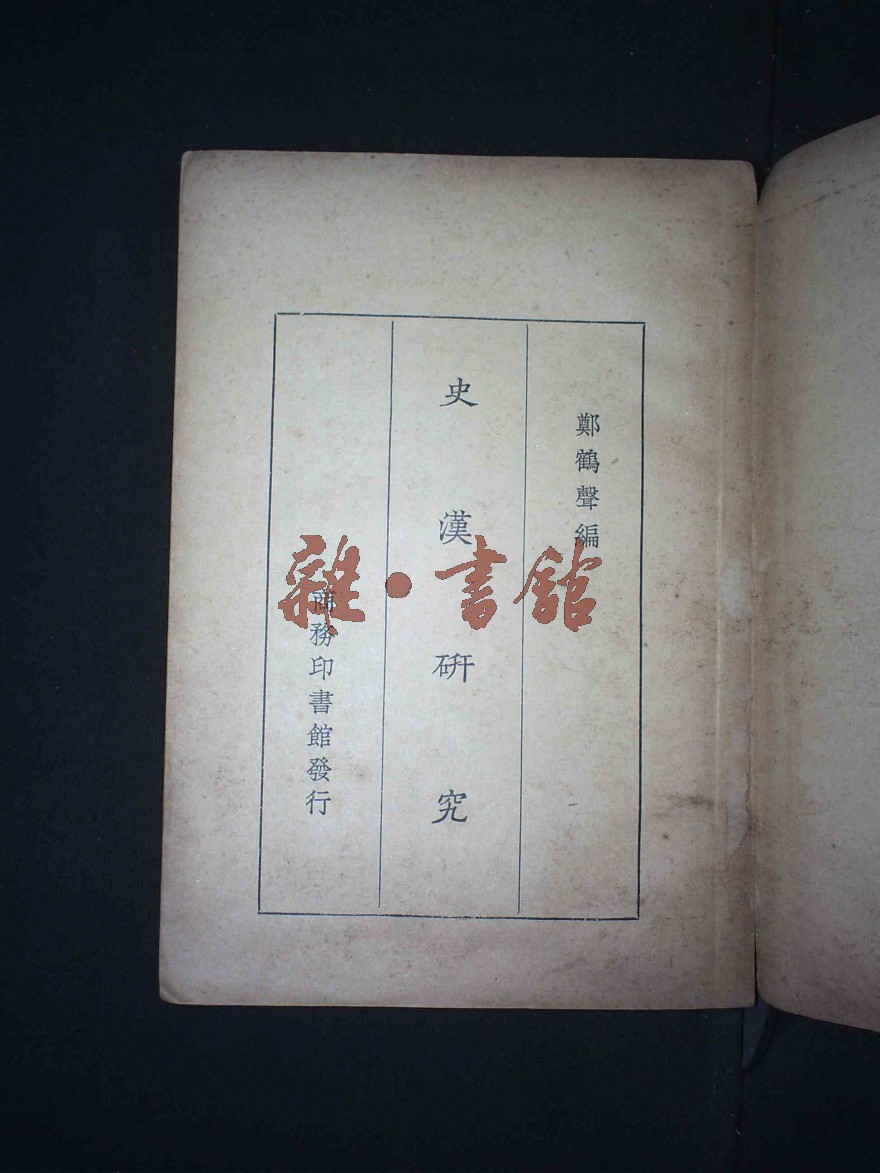 鄭鶴聲編
史漢研究
商務印書館發行
雜·書館